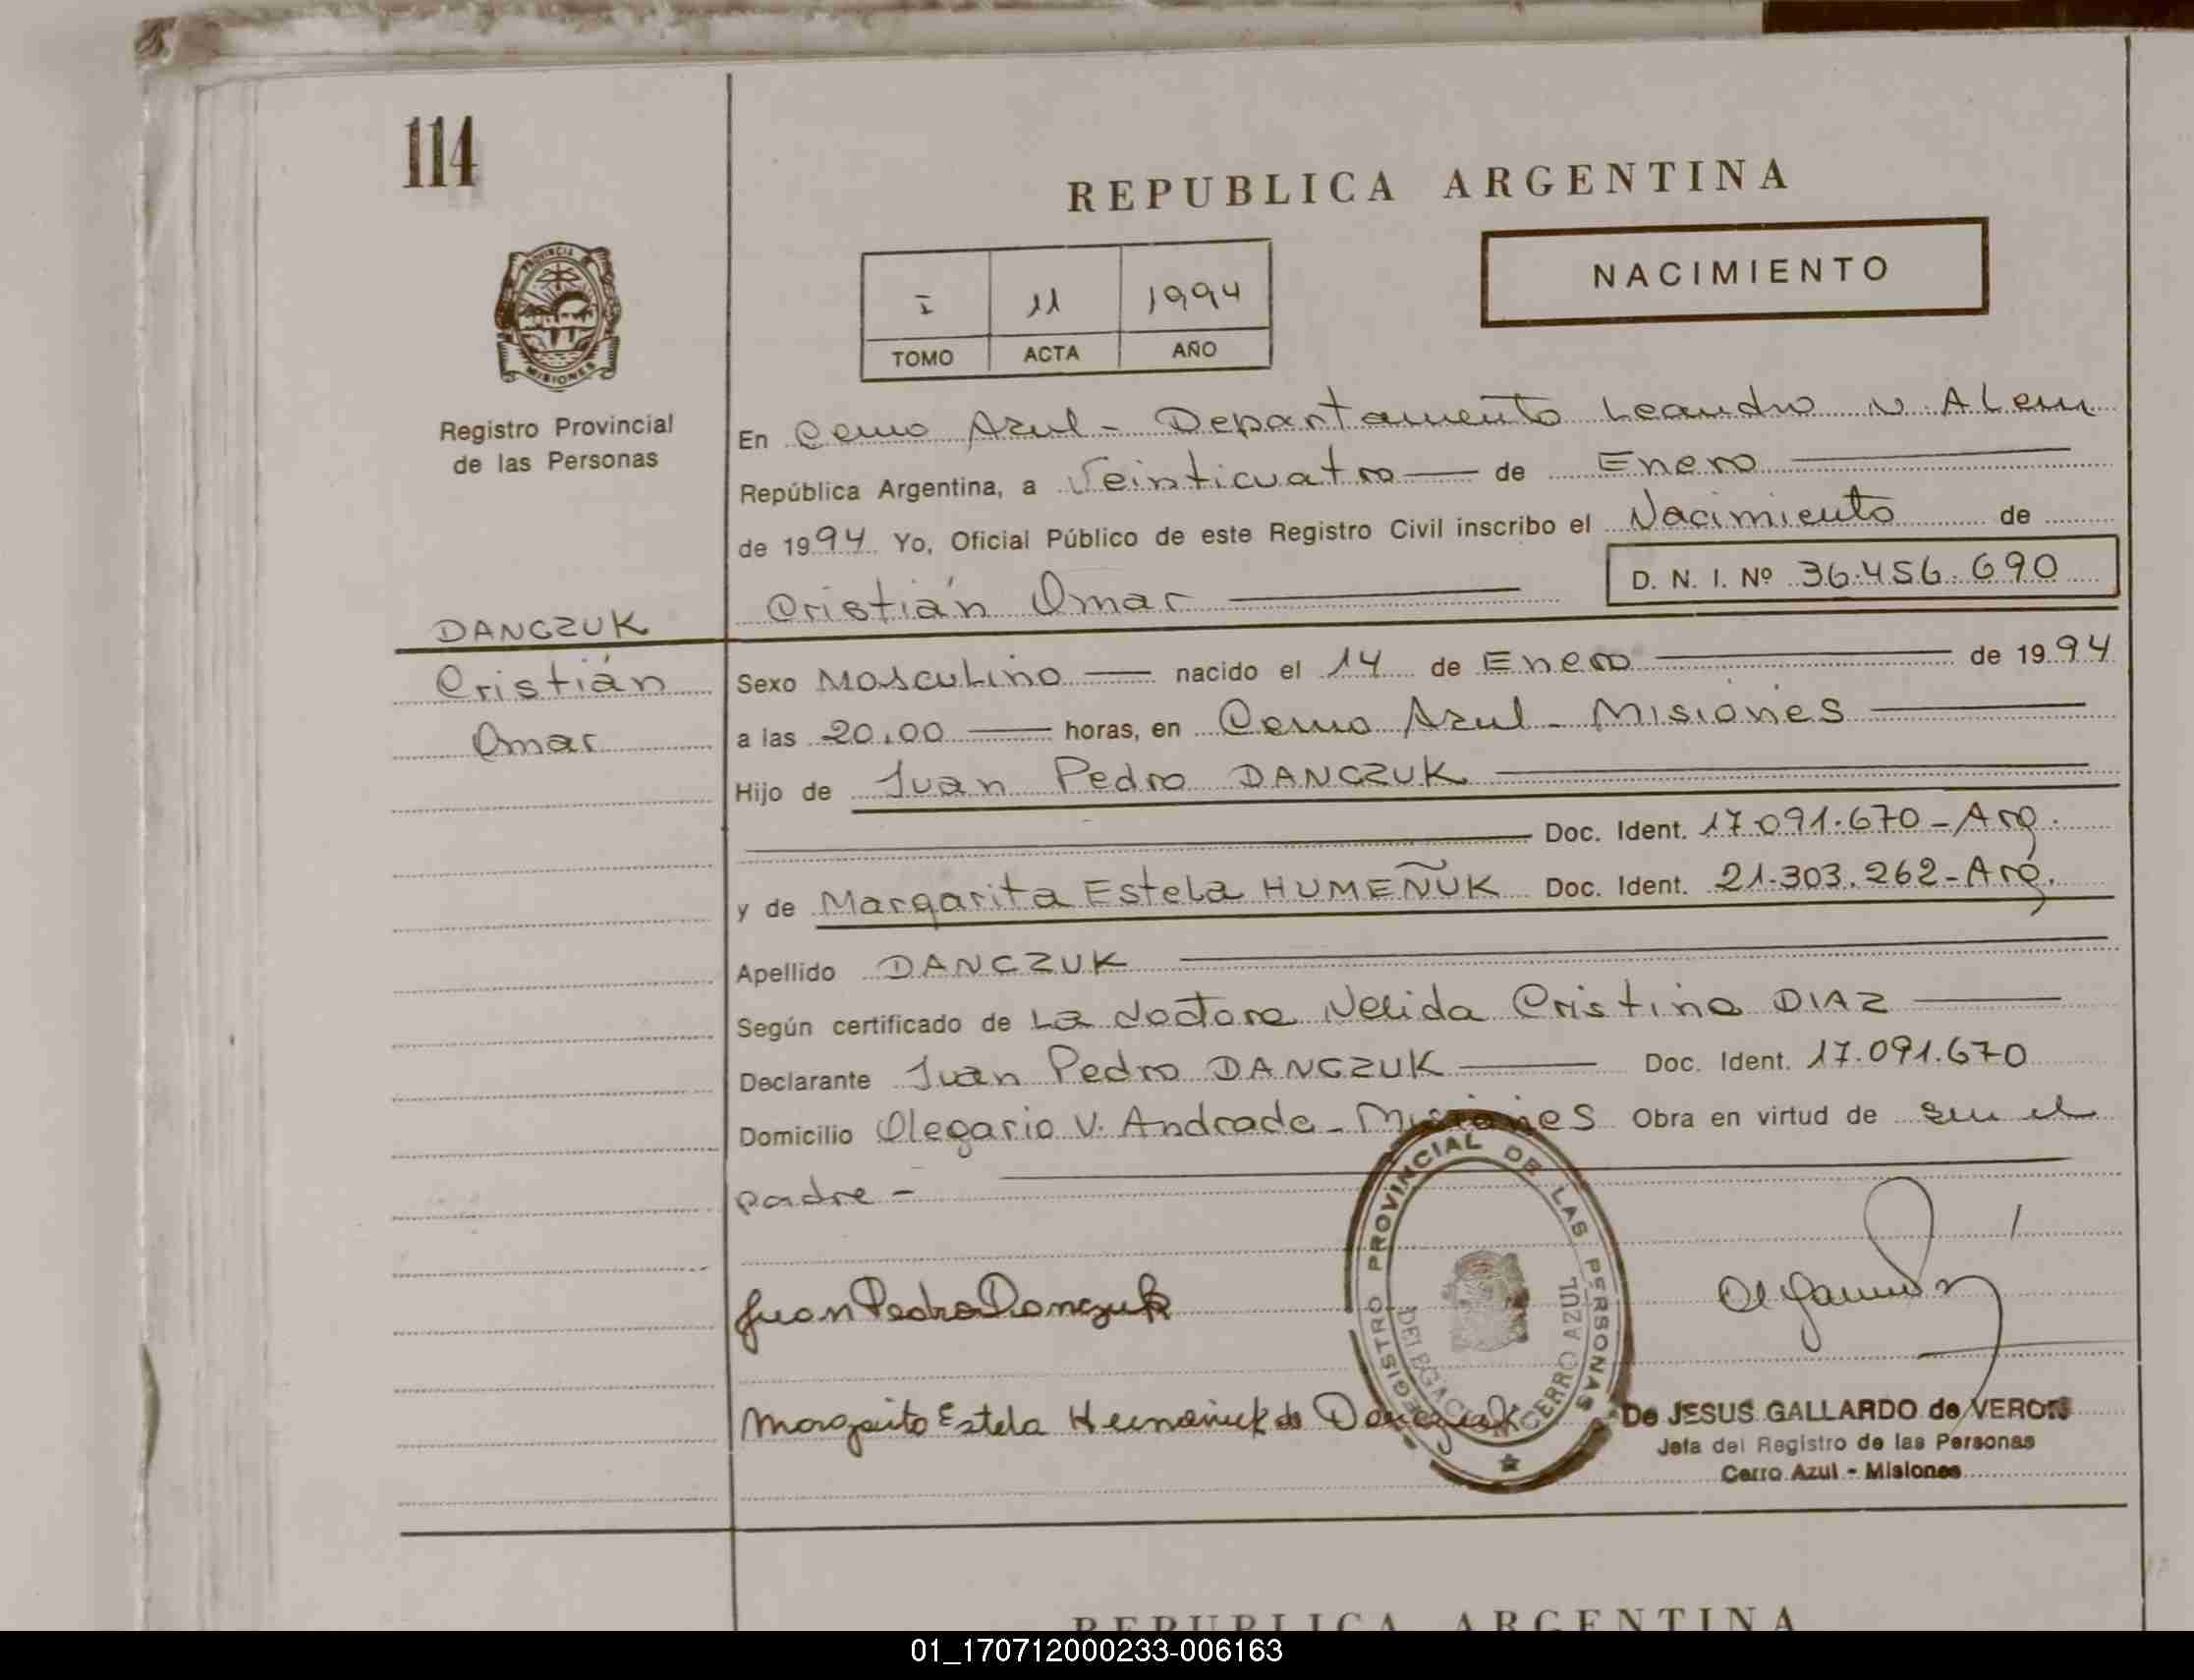 114
REPUBLICA ARGENTINA
PROVINCIA
MISIONES
Registro Provincial
de las Personas
I 11 1994
TOMO ACTA AÑO
NACIMIENTO
En Cerro Azul - Departamento Leandro N. Alem
República Argentina, a Veinticuatro de Enero
de 1994 Yo, Oficial Público de este Registro Civil inscribo el Nacimiento de
Cristián Omar D. N. I. Nº 36.456.690
DANCZUK
Cristián
Omar
Sexo Masculino nacido el 14 de Enero de 1994
a las 20.00 horas, en Cerro Azul - Misiones
Hijo de Juan Pedro DANCZUK
Doc. Ident. 17.091.670 - Arg.
y de Margarita Estela HUMEÑUK Doc. Ident. 21.303.262 - Arg.
Apellido DANCZUK
Según certificado de La doctora Nelida Cristina DIAZ
Declarante Juan Pedro DANCZUK Doc. Ident. 17.091.670
Domicilio Olegario V. Andrade - Misiones Obra en virtud de ser el
padre -
Juan Pedro Danczuk
Margarita Estela Humeniuk de Danczuk
REGISTRO PROVINCIAL DE LAS PERSONAS
DELEGACION CERRO AZUL
De JESUS GALLARDO de VERON
Jefa del Registro de las Personas
Cerro Azul - Misiones
REPUBLICA ARGENTINA
01_170712000233-006163